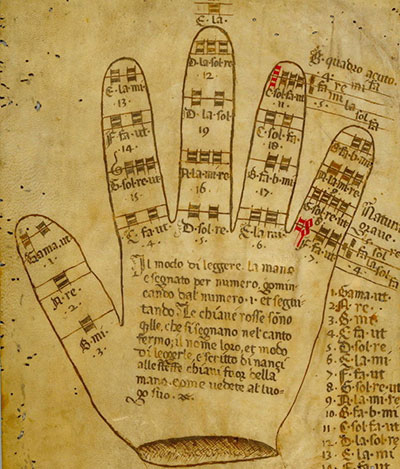 E.la.
D.la.sol.re
12
D.la.sol
19
A.la.mi.re
16
D.sol.re
.5.
E.la.mi
.13.
F.fa.ut
14
G.sol.re.ut
15
C.fa.ut
.4.
C.sol.fa.ut
11
C.sol.fa
18
B.fa.b.mi
.17.
E.la.mi
.6.
B.fa.b.mi
A.la.mi.re
G.sol.re.ut
F.fa.ut
.7.
Gama.ut
.1.
A.re
.2.
B.mi
.3.
B quadro acuto.
.4. re mi fa
fa mi la sol fa
.5.
Natura
grave.
fa la sol fa
Il modo di leggere la mano
e segnato per numero, comin
cando dal numero .1. et segui
tando: Le chiaue rosse sono
q̃lle, che si segnano nel canto
fermo, il nome loro, et modo
di leggerle, e scritto dinanci
alle stesse chiaui fuor della
mano, come vedete al luo-
go suo.
1. Gama.ut.
2. A.re.
3. B.mi
4. C.fa.ut
5. D.sol.re
6. E.la.mi
7. F.fa.ut
8. G.sol.re.ut
9. A.la.mi.re
10. B.fa.b.mi
11. C.sol.fa.ut
12. D.la.sol.re
13. E.la.mi
14. F.fa.ut